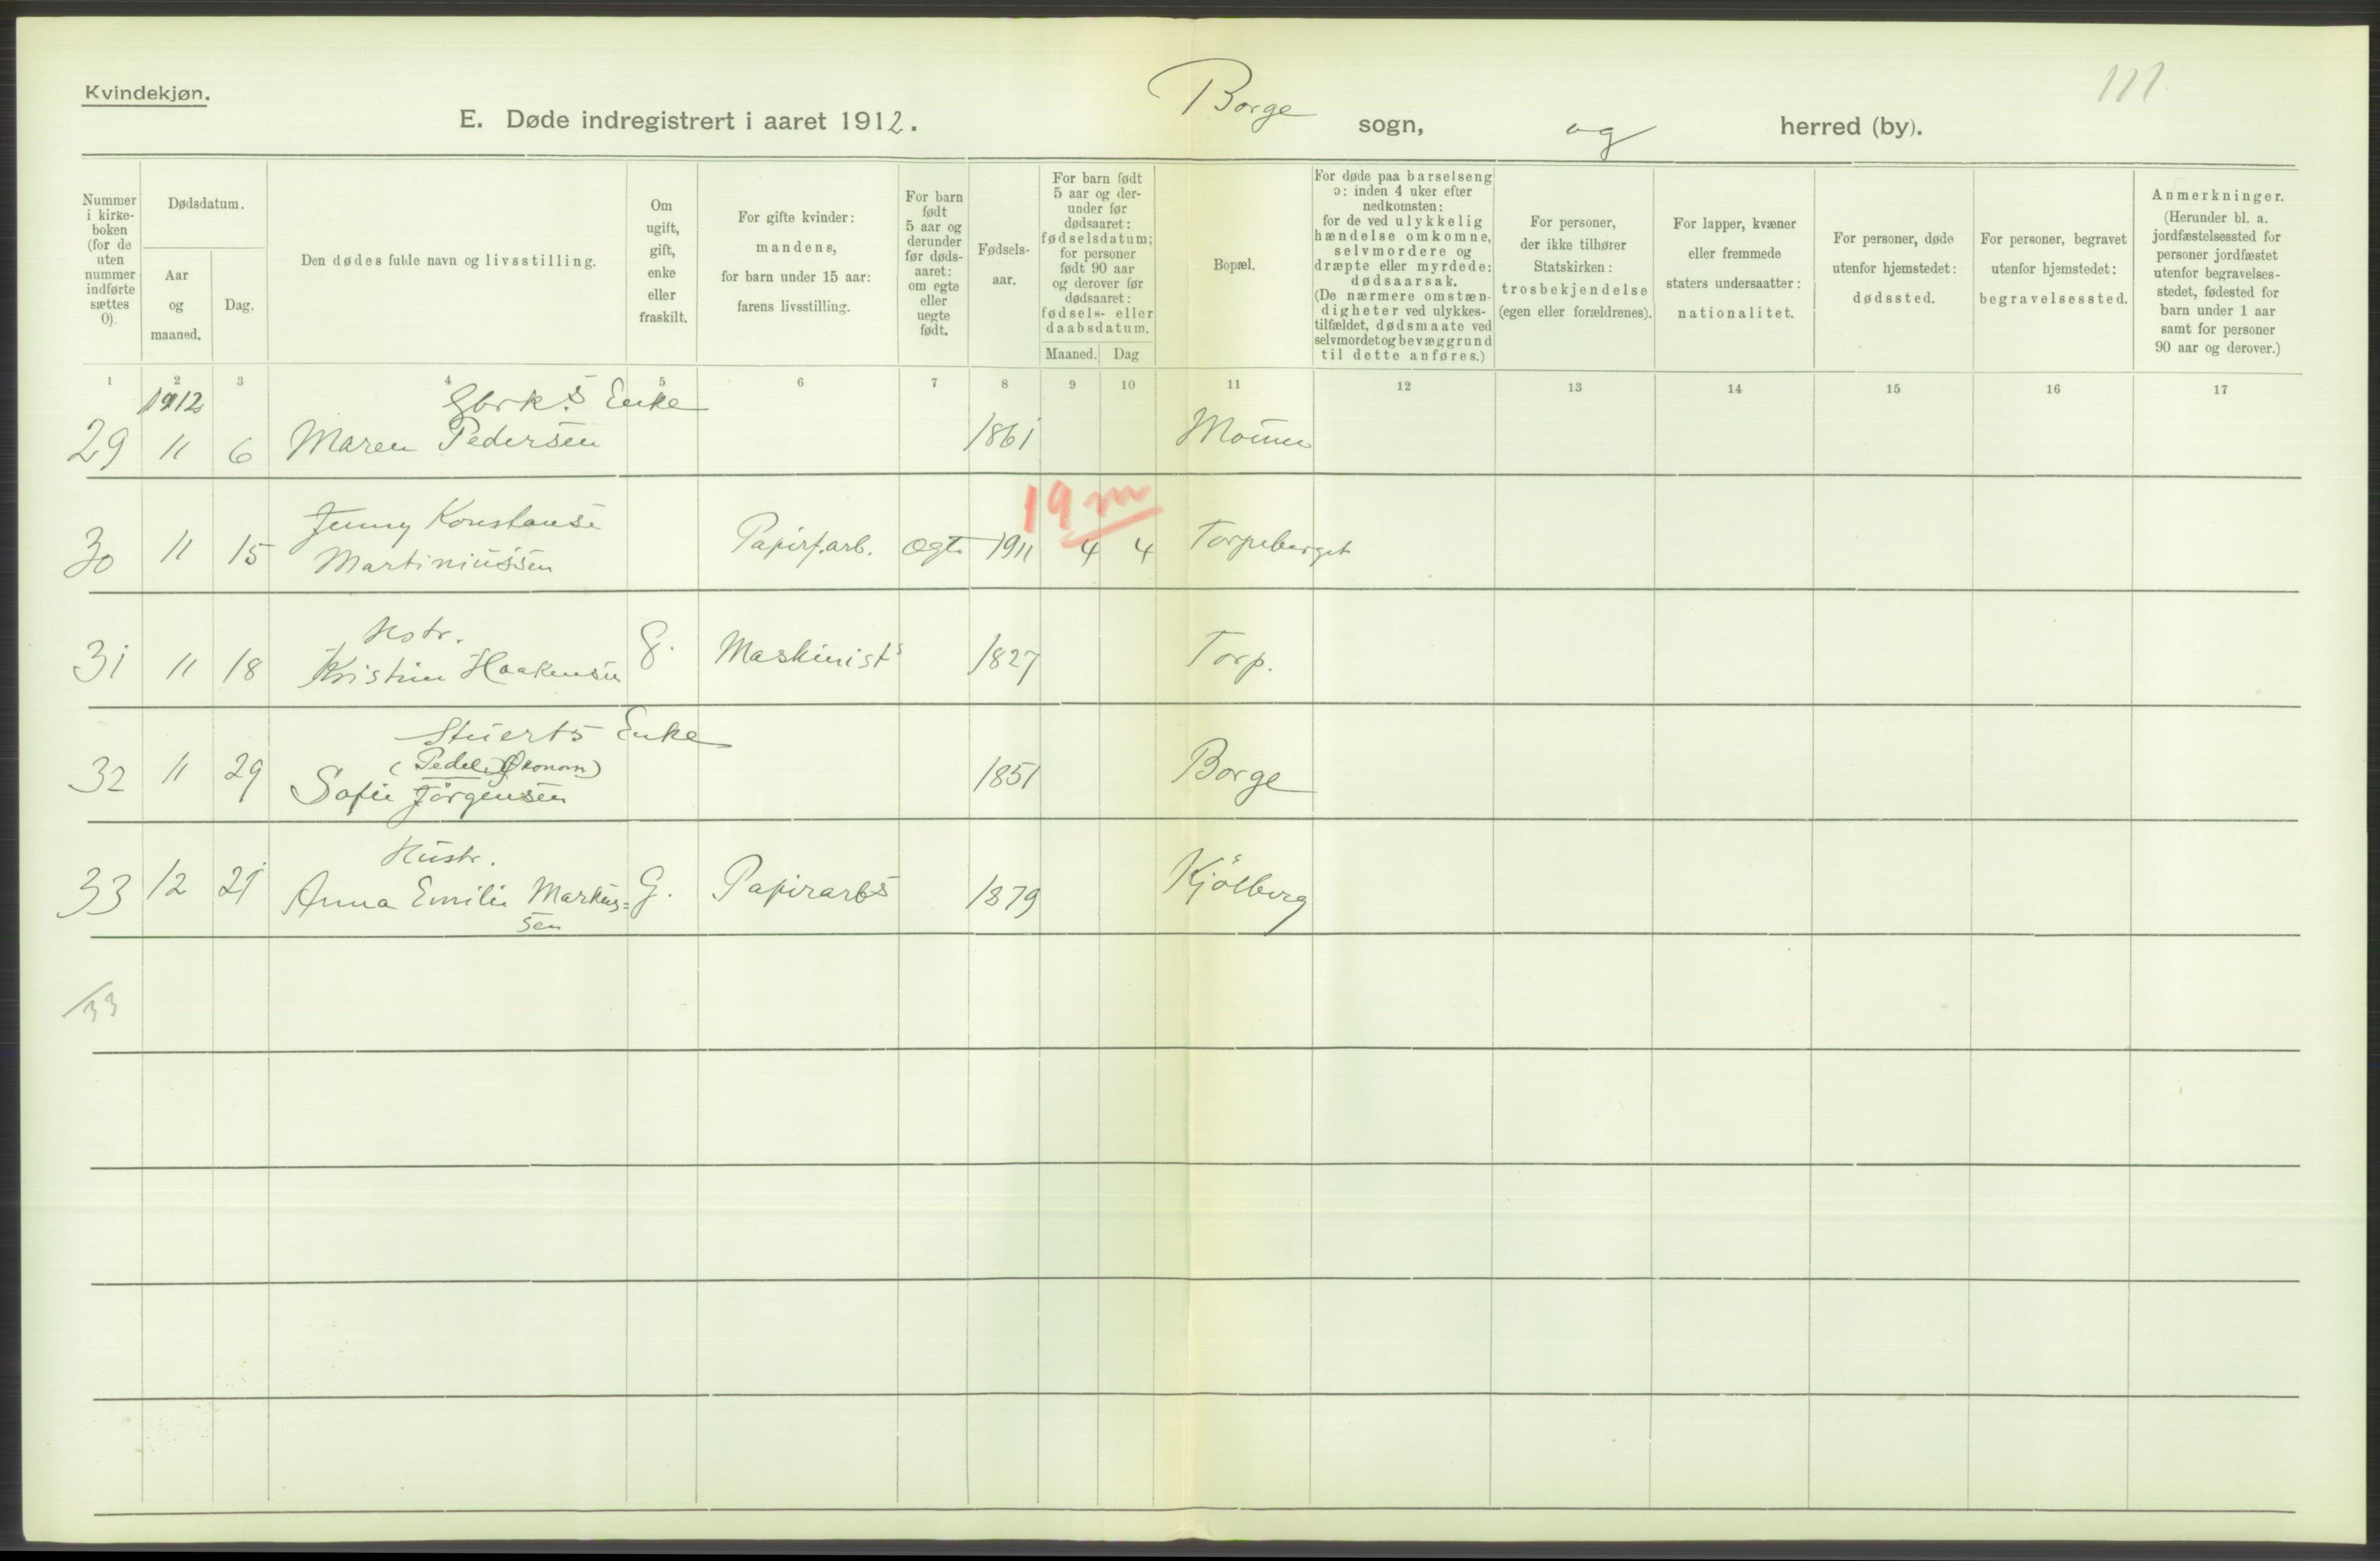 Kvindekjøn.
111
E. Døde indregistrert i aaret 1912.
Borge sogn, og herred (by).
Nummer i kirke-boken (for de uten nummer indførte sættes 0).
Dødsdatum.
Aar og maaned.
Dag.
Den dødes fulde navn og livsstilling.
Om ugift, gift, enke eller fraskilt.
For gifte kvinder: mandens, for barn under 15 aar: farens livsstilling.
For barn født 5 aar og derunder før døds-aaret: om egte eller uegte født.
Fødsels-aar.
For barn født 5 aar og der-under før dødsaaret: fødselsdatum; for personer født 90 aar og derover før dødsaaret: fødsels- eller daabsdatum.
Maaned. Dag
Bopæl.
For døde paa barselseng ɔ: inden 4 uker efter nedkomsten: for de ved ulykkelig hændelse omkomne, selvmordere og dræpte eller myrdede: dødsaarsak. (De nærmere omstæn-digheter ved ulykkes-tilfældet, dødsmaate ved selvmordet og bevæggrund til dette anføres.)
For personer, der ikke tilhører Statskirken: trosbekjendelse (egen eller forældrenes).
For lapper, kvæner eller fremmede staters undersaatter: nationalitet.
For personer, døde utenfor hjemstedet: dødssted.
For personer, begravet utenfor hjemstedet: begravelsessted.
Anmerkninger. (Herunder bl. a. jordfæstelsessted for personer jordfæstet utenfor begravelses-stedet, fødested for barn under 1 aar samt for personer 90 aar og derover.)
1 2 3 4 5 6 7 8 9 10 11 12 13 14 15 16 17
1912 Gbrk.s Enke
29 11 6 Maren Pedersen 1861
19 m
Jenny Konstanse
30 11 15 Martiniussen Papirf.arb. Ogt. 1911 4 4 Torpeberget
Hstr.
31 11 18 Kristine Haakensen g. Maskinists 1827 Torp.
Stuerts Enke
(Pedel, Økonom)
32 11 29 Sofie Jörgensen 1851 Borge
Hustr.
33 12 21 Anna Emilie Markus= G. Papirarbs 1879 Kjölberg
sen
/33